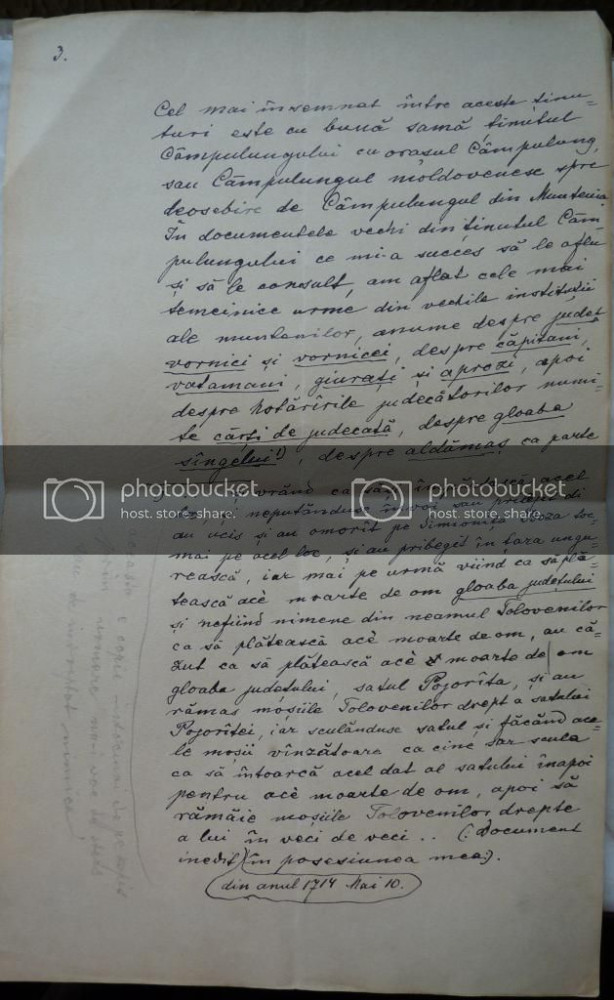 3.
Cel mai însemnat între aceste ținu-
turi este cu bună samă ținutul
Câmpulungului cu orașul Câmpulung,
sau Câmpulungul moldovenesc spre
deosebire de Câmpulungul din Muntenia.
În documentele vechi din ținutul Câm-
pulungului ce mi-a succes să le aflu
și să le consult, am aflat cele mai
temeinice urme din vechile instituții
ale muntenilor, anume despre județ
vornici și vornicei, despre căpitani,
vatamani, giurați și aprozi, apoi
despre hotărîrile judecătorilor numi-
te cărți de judecată, despre gloaba
sîngelui!), despre aldămaș ca parte
photobucket photobucket
host. store. share. host. store. share.
vrând ca să acel
neputânduse
au ucis și au omorît pe Simioniță
mai pe acel loc, și au pribegit în țara ungu-
rească, iar mai pe urmă viind ca să plă-
tească acè moarte de om gloaba județului
și nefiind nimene din neamul Tolovenilor
ca să plătească acè moarte de om, au că-
zut ca să plătească acè moarte de om
gloaba județului, satul Pojorîta, și au
rămas moșiile Tolovenilor drept a satului
Pojorîtei, iar sculânduse satul și făcând ace-
le moșii vînzătoare ca cine sar scula
ca să întoarcă acel dat al satului înapoi
pentru acè moarte de om, apoi să
rămăie moșiile Tolovenilor drepte
a lui în veci de veci .. (Document
inedit) în posesiunea mea).
din anul 1714 Mai 10.